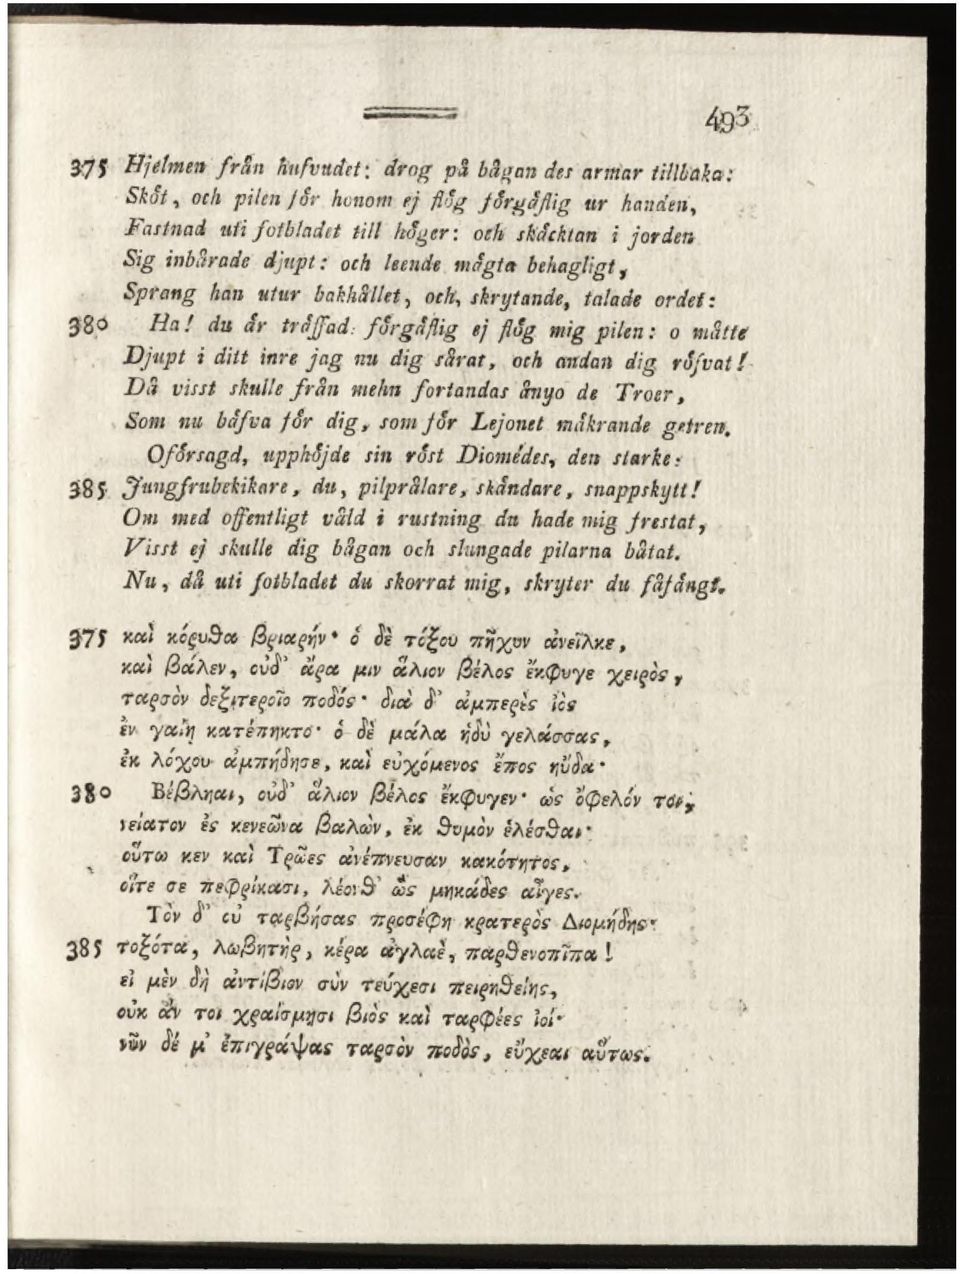 493
375 Hjelmen från hufvudet: drog på bågan des armar tillbaka:
Skôt, och pilen fôr honom ej flôg fôrgåflig ur handen,
Fastnad uti fotbladet till hôger: och skåcktan i jorden
Sig inbårade djupt: och leende mågta behagligt,
Sprang han utur bakhållet, och, skrytande, talade ordet:
380 Ha! du år tråffad: fôrgåflig ej flôg mig pilen: o måtte
Djupt i ditt inre jag nu dig sårat, och andan dig rôfvat!
Då visst skulle från mehn fortandas ånyo de Troer,
Som nu båfva fôr dig, som fôr Lejonet måkrande getren.
Ofôrsagd, upphôjde sin rôst Diomédes, den starke:
385 Jungfrubekikare, du, pilprålare, skåndare, snappskytt!
Om med offentligt våld i rustning du hade mig frestat,
Visst ej skulle dig bågan och slungade pilarna båtat.
Nu, då uti fotbladet du skorrat mig, skryter du fåfångt.
375 καὶ κόρυϑα βριαρήν· ὁ δὲ τόξου πῆχυν ἀνεῖλκε,
καὶ βάλεν, οὐδ᾽ ἄρα μιν ἅλιον βέλος ἔκφυγε χειρὸς,
ταρσὸν δεξιτεροῖο ποδός· διὰ δ᾽ ἀμπερὲς ἰὸς
ἐν γαίῃ κατέπηκτο· ὁ δὲ μάλα ἡδὺ γελάσσας,
ἐκ λόχου ἀμπήδησε, καὶ εὐχόμενος ἔπος ηὔδα·
380 Βέβληαι, οὐδ᾽ ἅλιον βέλος ἔκφυγεν· ὡς ὄφελόν τοι,
νείατον ἐς κενεῶνα βαλὼν, ἐκ ϑυμὸν ἑλέσϑαι·
οὕτω κεν καὶ Τρῶες ἀνέπνευσαν κακότητος,
οἵτε σε πεφρίκασι, λέονϑ᾽ ὡς μηκάδες αἶγες.
Τὸν δ᾽ οὐ ταρβήσας προσέφη κρατερὸς Διομήδης·
385 τοξότα, λωβητὴρ, κέρα ἀγλαὲ, παρϑενοπῖπα !
εἰ μὲν δὴ ἀντίβιον σὺν τεύχεσι πειρηϑείης,
οὐκ ἄν τοι χραίσμησι βιὸς καὶ ταρφέες ἰοί·
νῦν δέ μ᾽ ἐπιγράψας ταρσὸν ποδὸς, εὔχεαι αὔτως.